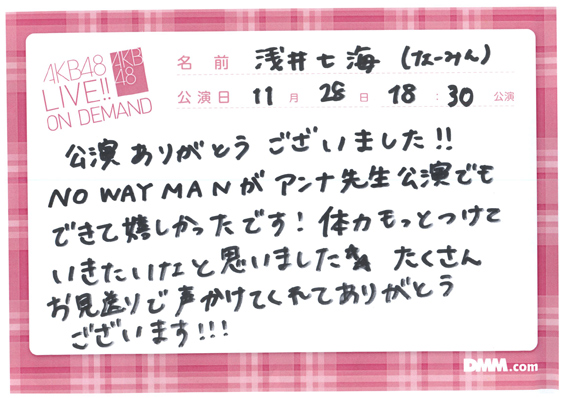 AKB48
LIVE!!
ON DEMAND
AKB
48
名前 浅井七海 (なーみん)
公演日 11月28日 18:30公演
公演ありがとうございました!!
NO WAY MANがアンナ先生公演でも
できて嬉しかったです!体力もっとつけて
いきたいなと思いました たくさん
お見送りで声かけてくれてありがとう
ございます!!!
DMM.com